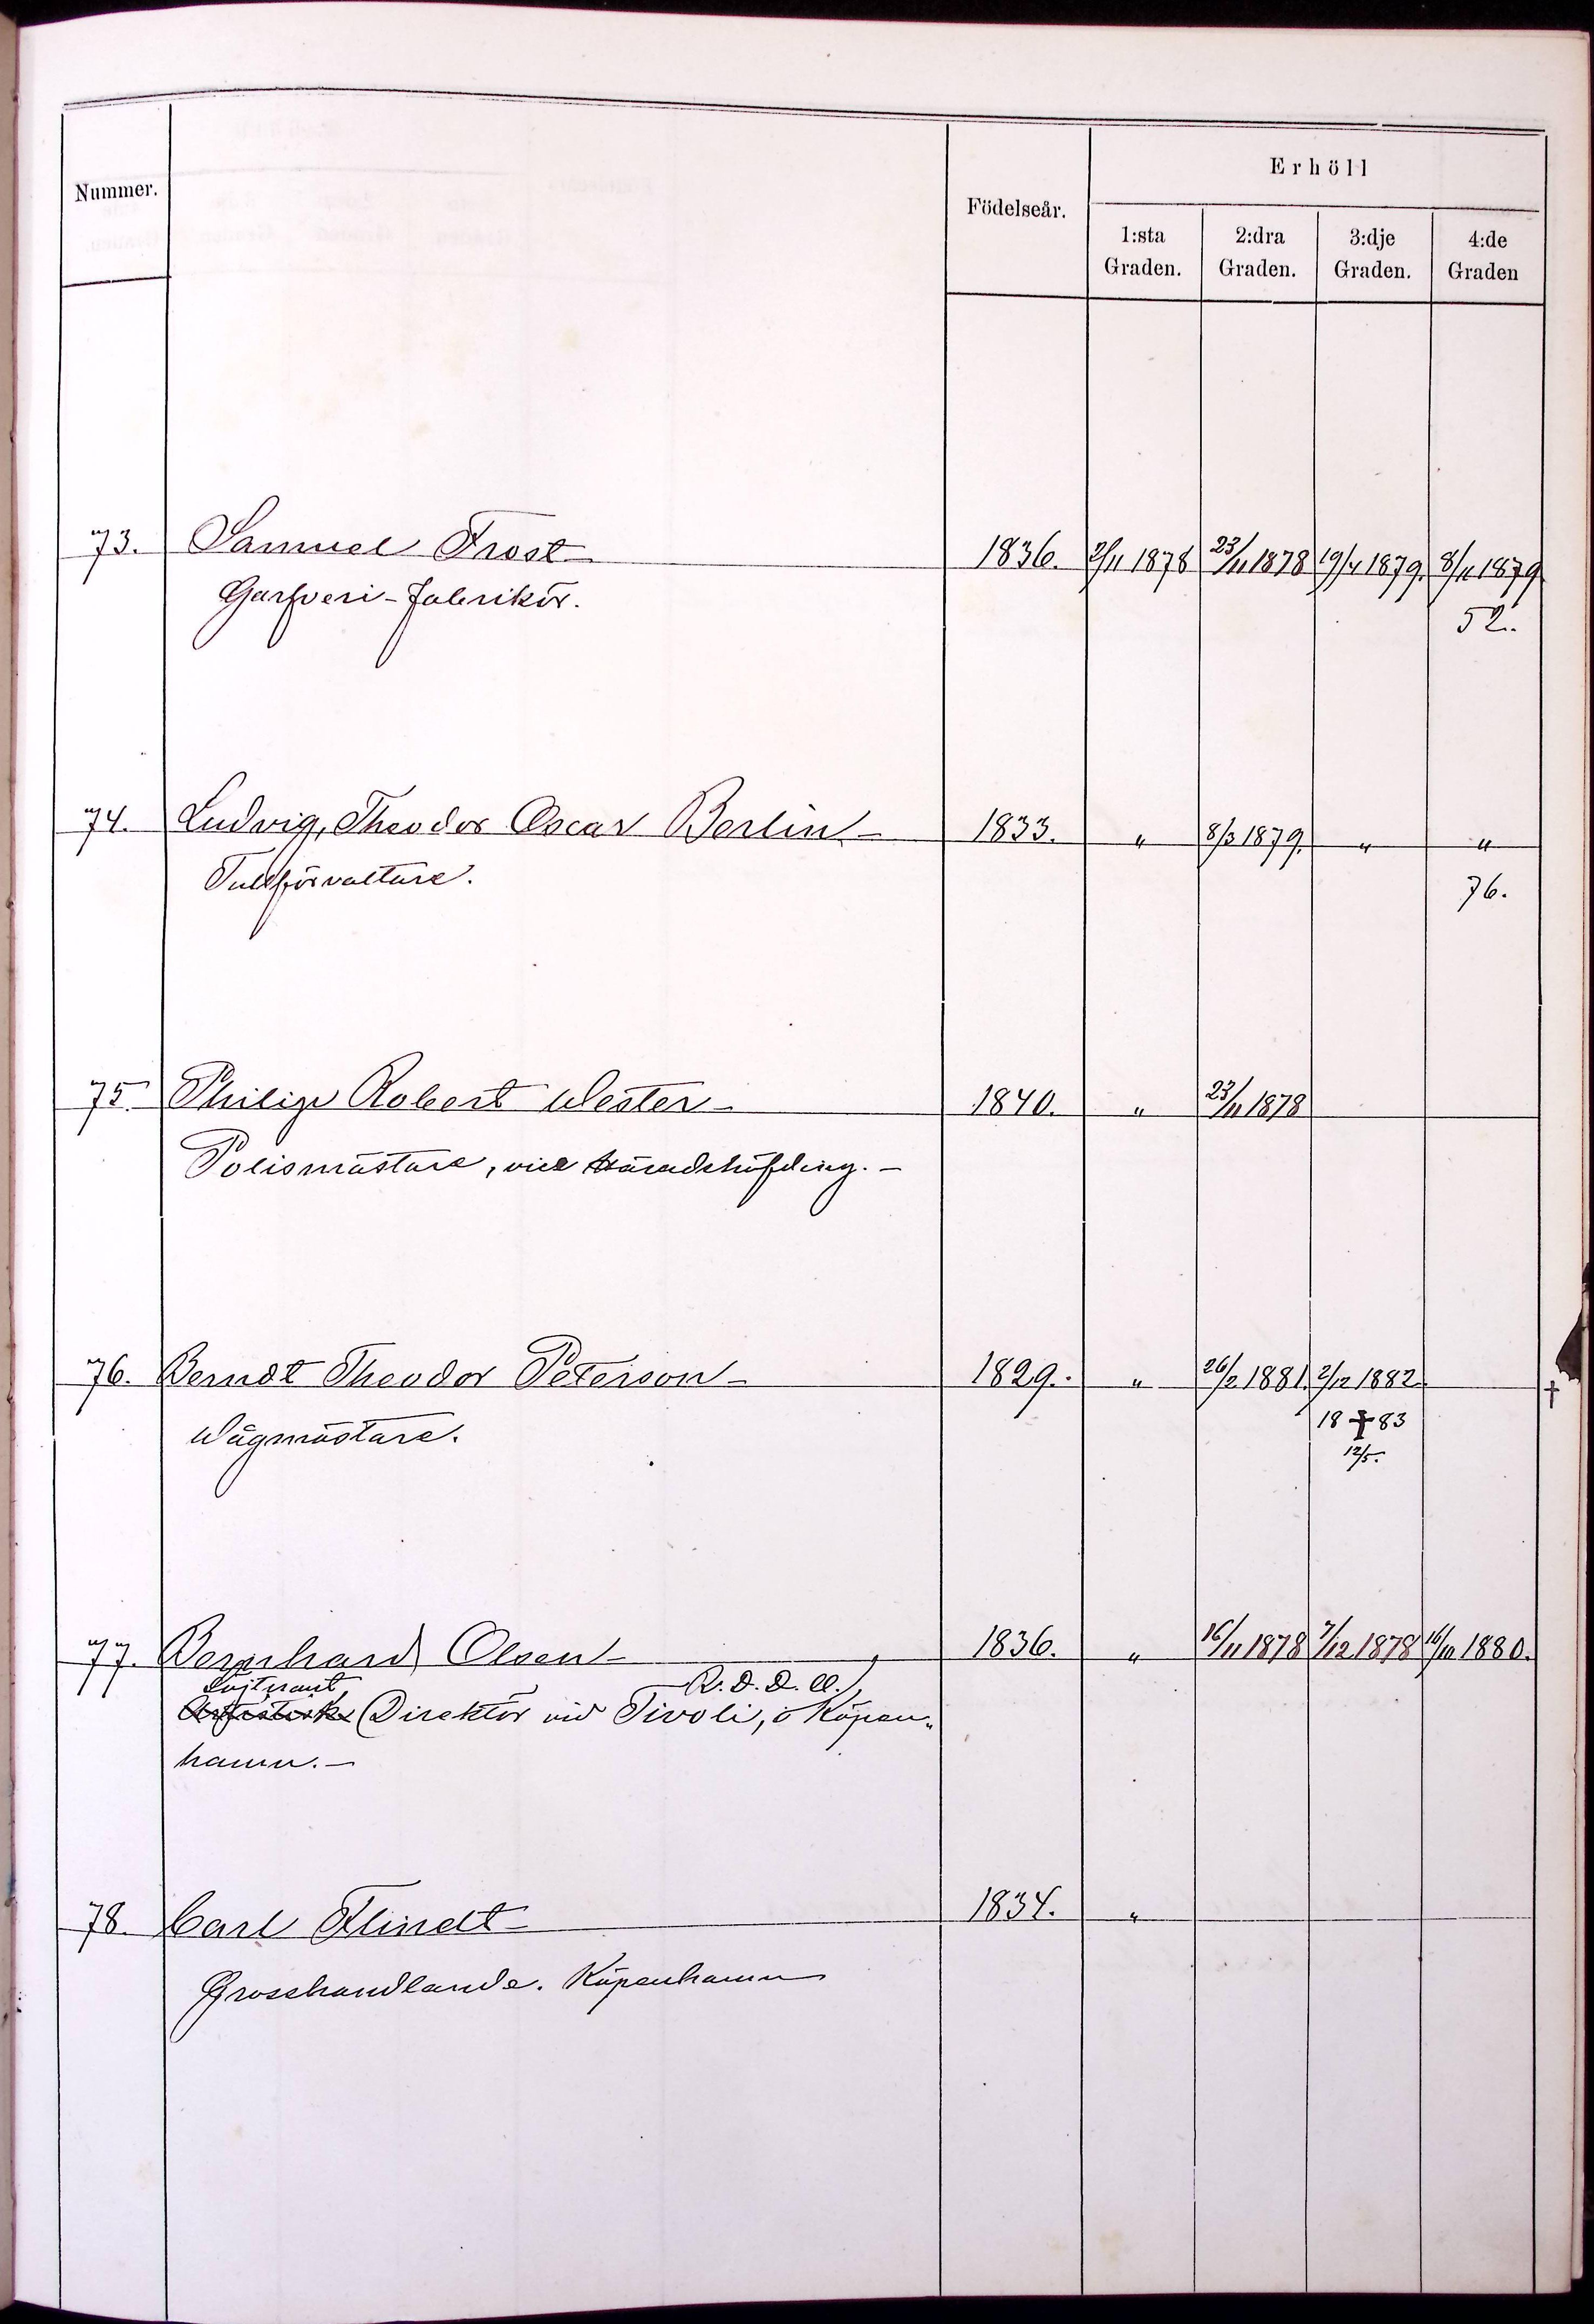 Nummer.
Födelseår.
Erhöll
1:sta Graden.
2:dra Graden.
3:dje Graden.
4:de Graden
73. Samuel Frost 1836. 2/11 1878 23/11 1878 19/4 1879. 8/11 1879
Garfveri-Fabrikör. 52.
74. Ludvig, Theodor Oscar Berlin 1833. " 8/3 1879. " "
Tullförvaltare. 76.
75. Philip Robert Wester 1840. " 23/11 1878
Polismästare, vice Häradshöfding.
76. Berndt Theodor Peterson 1829. " 26/2 1881. 2/12 1882 †
Wågmästare. 18 † 83
12/5.
77. Bernhard Olsen 1836. " 16/11 1878 7/12 1878 16/10 1880.
Löjtnant, R. D. D. O.
Artistisk Direktör vid Tivoli, i Köpen„
hamn.
78. Carl Flindt 1834. "
Grosshandlande. Köpenhamn